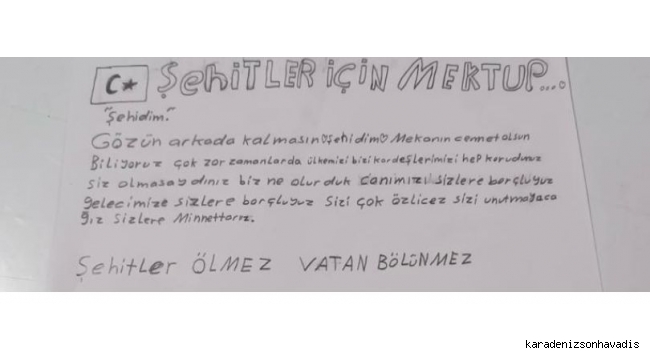 C★ ŞEHİTLER İÇİN MEKTUP....
"Şehidim."
Gözün arkada kalmasın♡şehidim♡ Mekanın cennet olsun
Biliyoruz çok zor zamanlarda ülkemizi bizi kardeşlerimizi hep korudunuz
siz olmasaydınız biz ne olurduk canımızı sizlere borçluyuz
gelecimize sizlere borçluyuz sizi çok özlicez sizi unutmayaca
ğız sizlere Minnettarız.
Şehitler ÖLMEZ VATAN BÖLÜNMEZ
karadenizsonhavadis